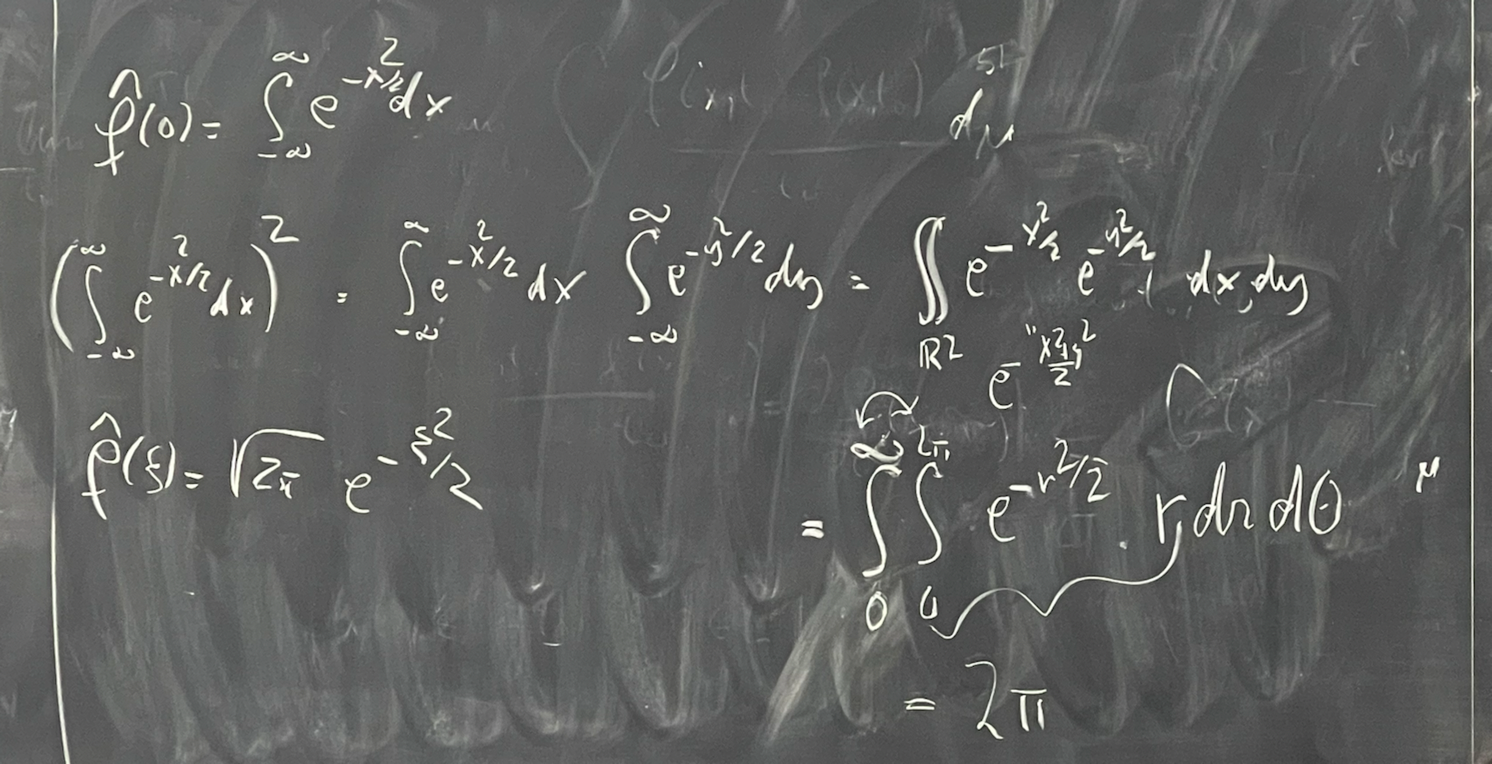 f̂(0) = ∫_{-∞}^{∞} e^{-x²/2} dx
dμ
(∫_{-∞}^{∞} e^{-x²/2} dx)² = ∫_{-∞}^{∞} e^{-x²/2} dx ∫_{-∞}^{∞} e^{-y²/2} dy = ∬_{ℝ²} e^{-x²/2} e^{-y²/2} dx dy
e^{-(x²+y²)/2}
f̂(ξ) = √2π e^{-ξ²/2}
= ∫_{0}^{∞} ∫_{0}^{2π} e^{-r²/2} · r dr dθ
= 2π